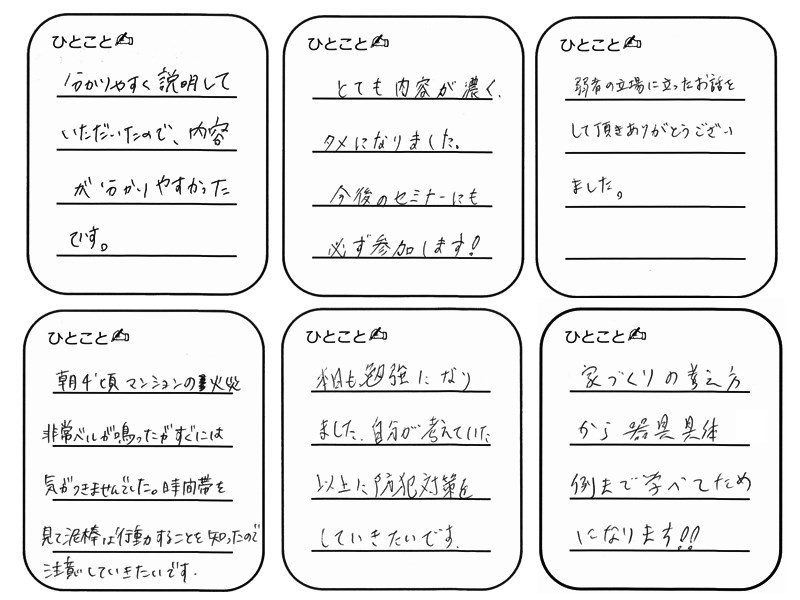 ひとこと✍
分かりやすく説明して
いただいたので、内容
が分かりやすかった
です。
ひとこと✍
とても内容が濃く、
タメになりました。
今後のセミナーにも
必ず参加します!
ひとこと✍
弱者の立場に立ったお話を
して頂きありがとうござい
ました。
ひとこと✍
朝4頃マンションの火災
非常ベルが鳴ったがすぐには
気がつきませんでした。時間帯を
見て泥棒は行動することを知ったので
注意していきたいです.
ひとこと✍
本日も勉強になり
ました.自分が考えていた
以上に防犯対策を
していきたいです.
ひとこと✍
家づくりの考え方
から器具具体
例まで学べてため
になります!!